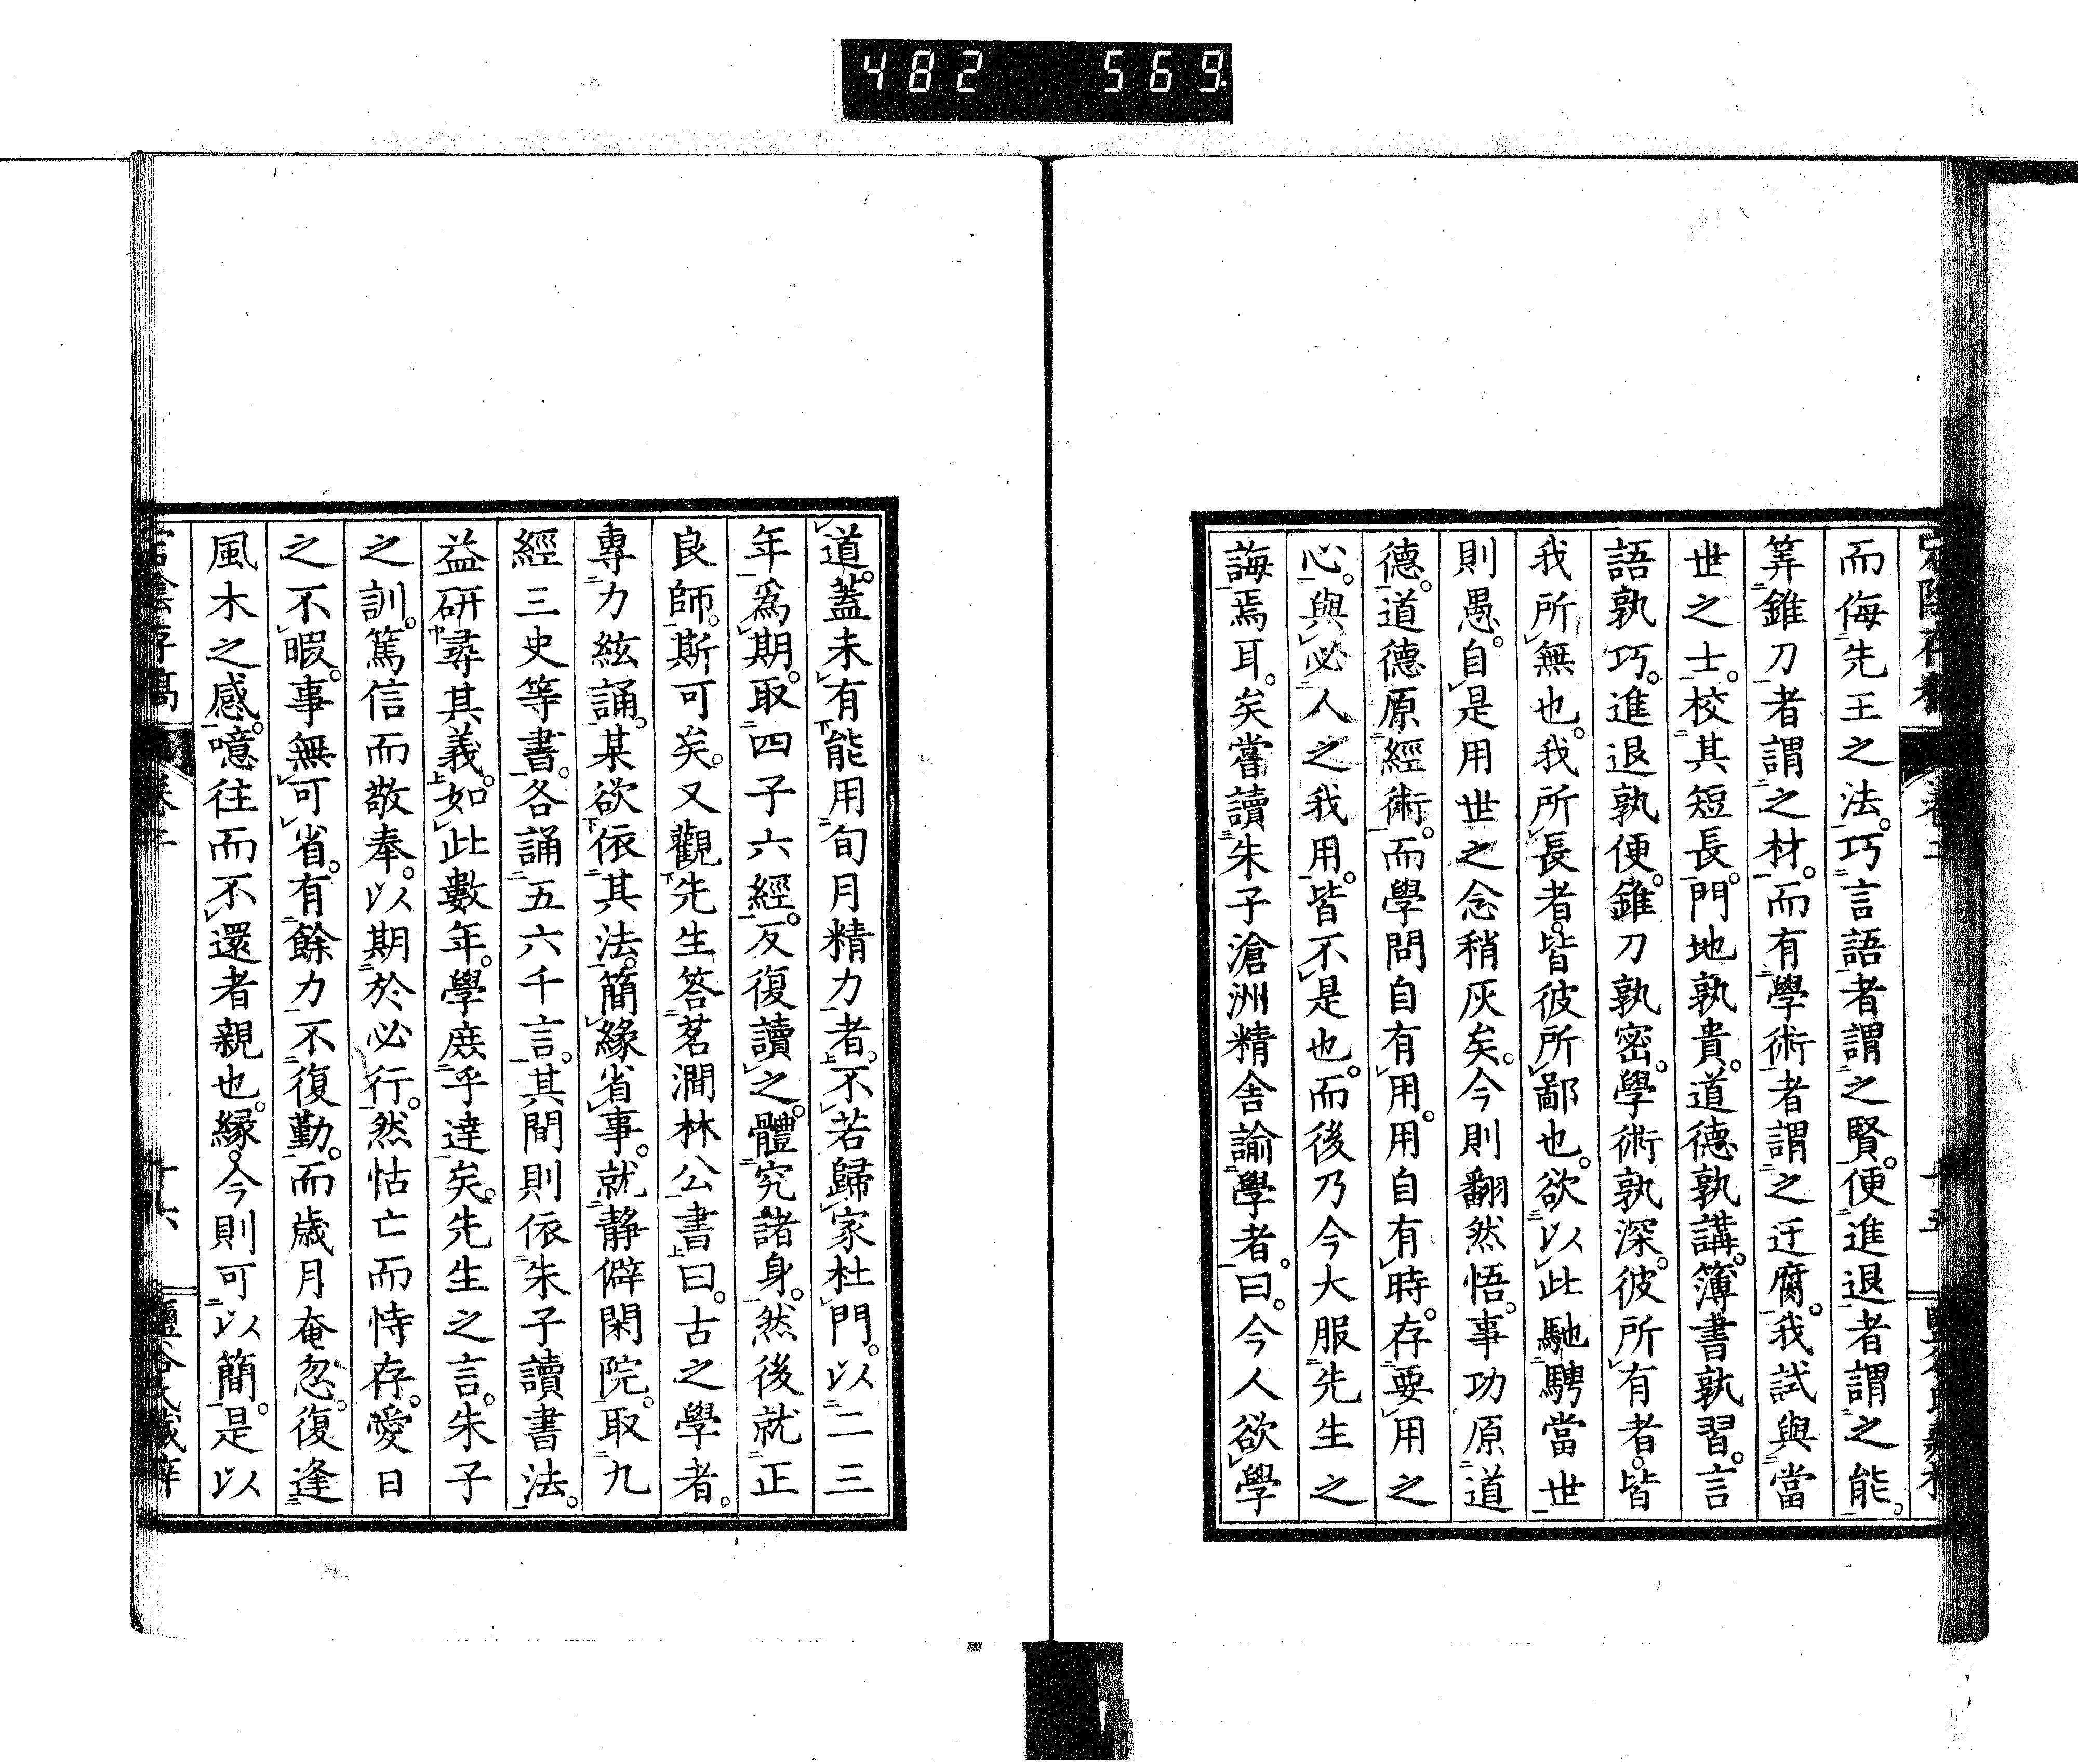 482 569
而侮先王之法。巧言語者謂之賢。便進退者謂之能。
筭錐刀者謂之材。而有學術者謂之迂腐。我試與當
世之士。校其短長。門地孰貴。道德孰講。簿書孰習。言
語孰巧。進退孰便。錐刀孰密。學術孰深。彼所有者。皆
我所無也。我所長者。皆彼所鄙也。欲以此馳騁當世
則愚。自是用世之念稍灰矣。今則翻然悟。事功原道
德。道德原經術。而學問自有用。用自有時。存要用之
心。與必人之我用。皆不是也。而後乃今大服先生之
誨焉耳。矣嘗讀朱子滄洲精舍諭學者。曰。今人欲學
道。蓋未有能用旬月精力者。不若歸家杜門。以二三
年爲期。取四子六經。反復讀之。體究諸身。然後就正
良師。斯可矣。又觀先生答茗澗林公書曰。古之學者。
專力絃誦。某欲依其法。簡緣省事。就靜僻閑院。取九
經三史等書。各誦五六千言。其間則依朱子讀書法。
益研尋其義。如此數年。學庶乎達矣。先生之言。朱子
之訓。篤信而敬奉。以期於必行。然怙亡而恃存。愛日
之不暇。事無可省。有餘力不復勤。而歲月奄忽。復逢
風木之感。噫往而不還者親也。緣。今則可以簡。是以